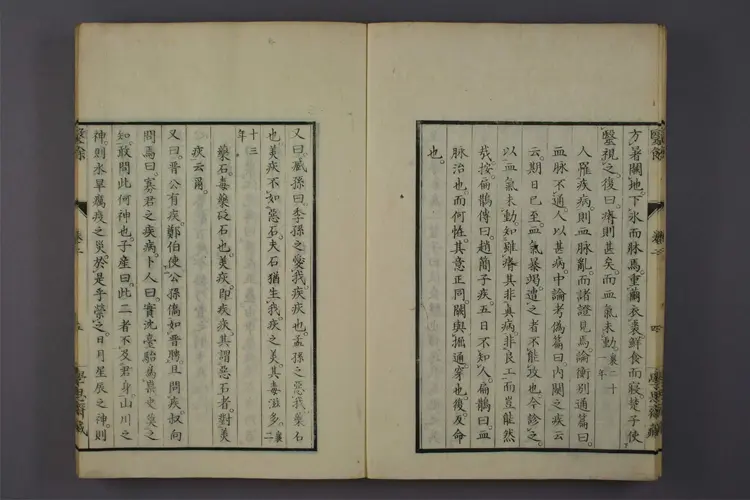 方暑闕地下冰而牀焉重繭衣裘鮮食而寢楚子使
醫視之復曰瘠則甚矣而血氣未動襄二十一年
人罹疾病則血脉亂而諸證見焉論衡別通篇曰
血脉不通人以甚病中論考偽篇曰內關之疾云
云期日已至血氣暴竭遣之者不能攻也今診之
以血氣未動知雖瘠其非真病非良工而豈能然
哉按扁鵲傳曰趙簡子疾五日不知人扁鵲曰血
脉治也而何恠其意正同闕與掘通穿也復反命
也
又曰臧孫曰季孫之愛我疾疢也孟孫之惡我藥石
也美疢不如惡石夫石猶生我疢之美其毒滋多襄二
十三年
藥石毒藥砭石也美疢即疾疢其謂惡石者對美
疢云爾
又曰晋公有疾鄭伯使公孫僑如晋聘且問疾叔向
問焉曰寡君之疾病卜人曰實沈臺駘爲祟史莫之
知敢問此何神也子産曰此二者不及君身山川之
神則水旱癘疫之災於是乎禜之日月星辰之神則
醫餘
卷二
四
學思齋藏
醫餘
卷二
五
學思齋藏